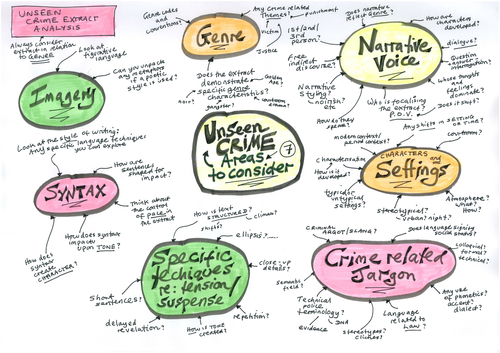 UNSEEN
CRIME EXTRACT
ANALYSIS
Always consider
extract in relation
to GENRE
Look at
figurative
language
Can you unpack
any metaphors
if a poetic
style is used?
Imagery
Genre codes
and conventions?
Any crime related
themes?
punishment
victim
Justice
Genre
Does the extract
demonstrate
specific genre
characteristics?
Golden
Age?
noir?
gangster?
courtroom
drama?
Does
narrative
reflect genre?
1st/2nd/
3rd
person?
Free
indirect
discourse?
Narrative
Voice
How are
characters
developed?
dialogue?
Question
answer
interrogation?
whose thoughts
and feelings
dominate?
Does it shift?
Narrative
Styling?
noirish?
etc
How do they
speak?
Who is focalising
the extract?
P.O.V.
Unseen
CRIME
Areas
to consider
7
Look at the style of writing:
Any specific language techniques
you can explore
How are
sentences
shaped for
impact?
SYNTAX
Think about
the control
of pace in
the extract
How does
syntax
create
CHARACTER?
How does syntax
impact
upon TONE?
modern context/
period context?
Any shifts in SETTING
or TIME?
courtroom?
characterisation
How is it
developed?
CHARACTERS
and
Settings
typical or
untypical
settings?
stereotypical?
urban? night?
Atmosphere?
what?
How?
How is text
STRUCTURED?
shifts?
climax?
ellipsis...
close-up
details?
Specific
techniques
re: tension/
suspense
Short
sentences?
delayed
revelation?
How is TONE
created?
repetition?
CRIMINAL
ARGOT/SLANG?
Does language signify
social status?
colloquial?
formal?
technical?
Crime related
Jargon
semantic
field?
Technical
police
terminology?
DNA
evidence
stereotypes?
cliches?
Language
related to
LAW?
Any use of
phonetics?
accent?
dialect?